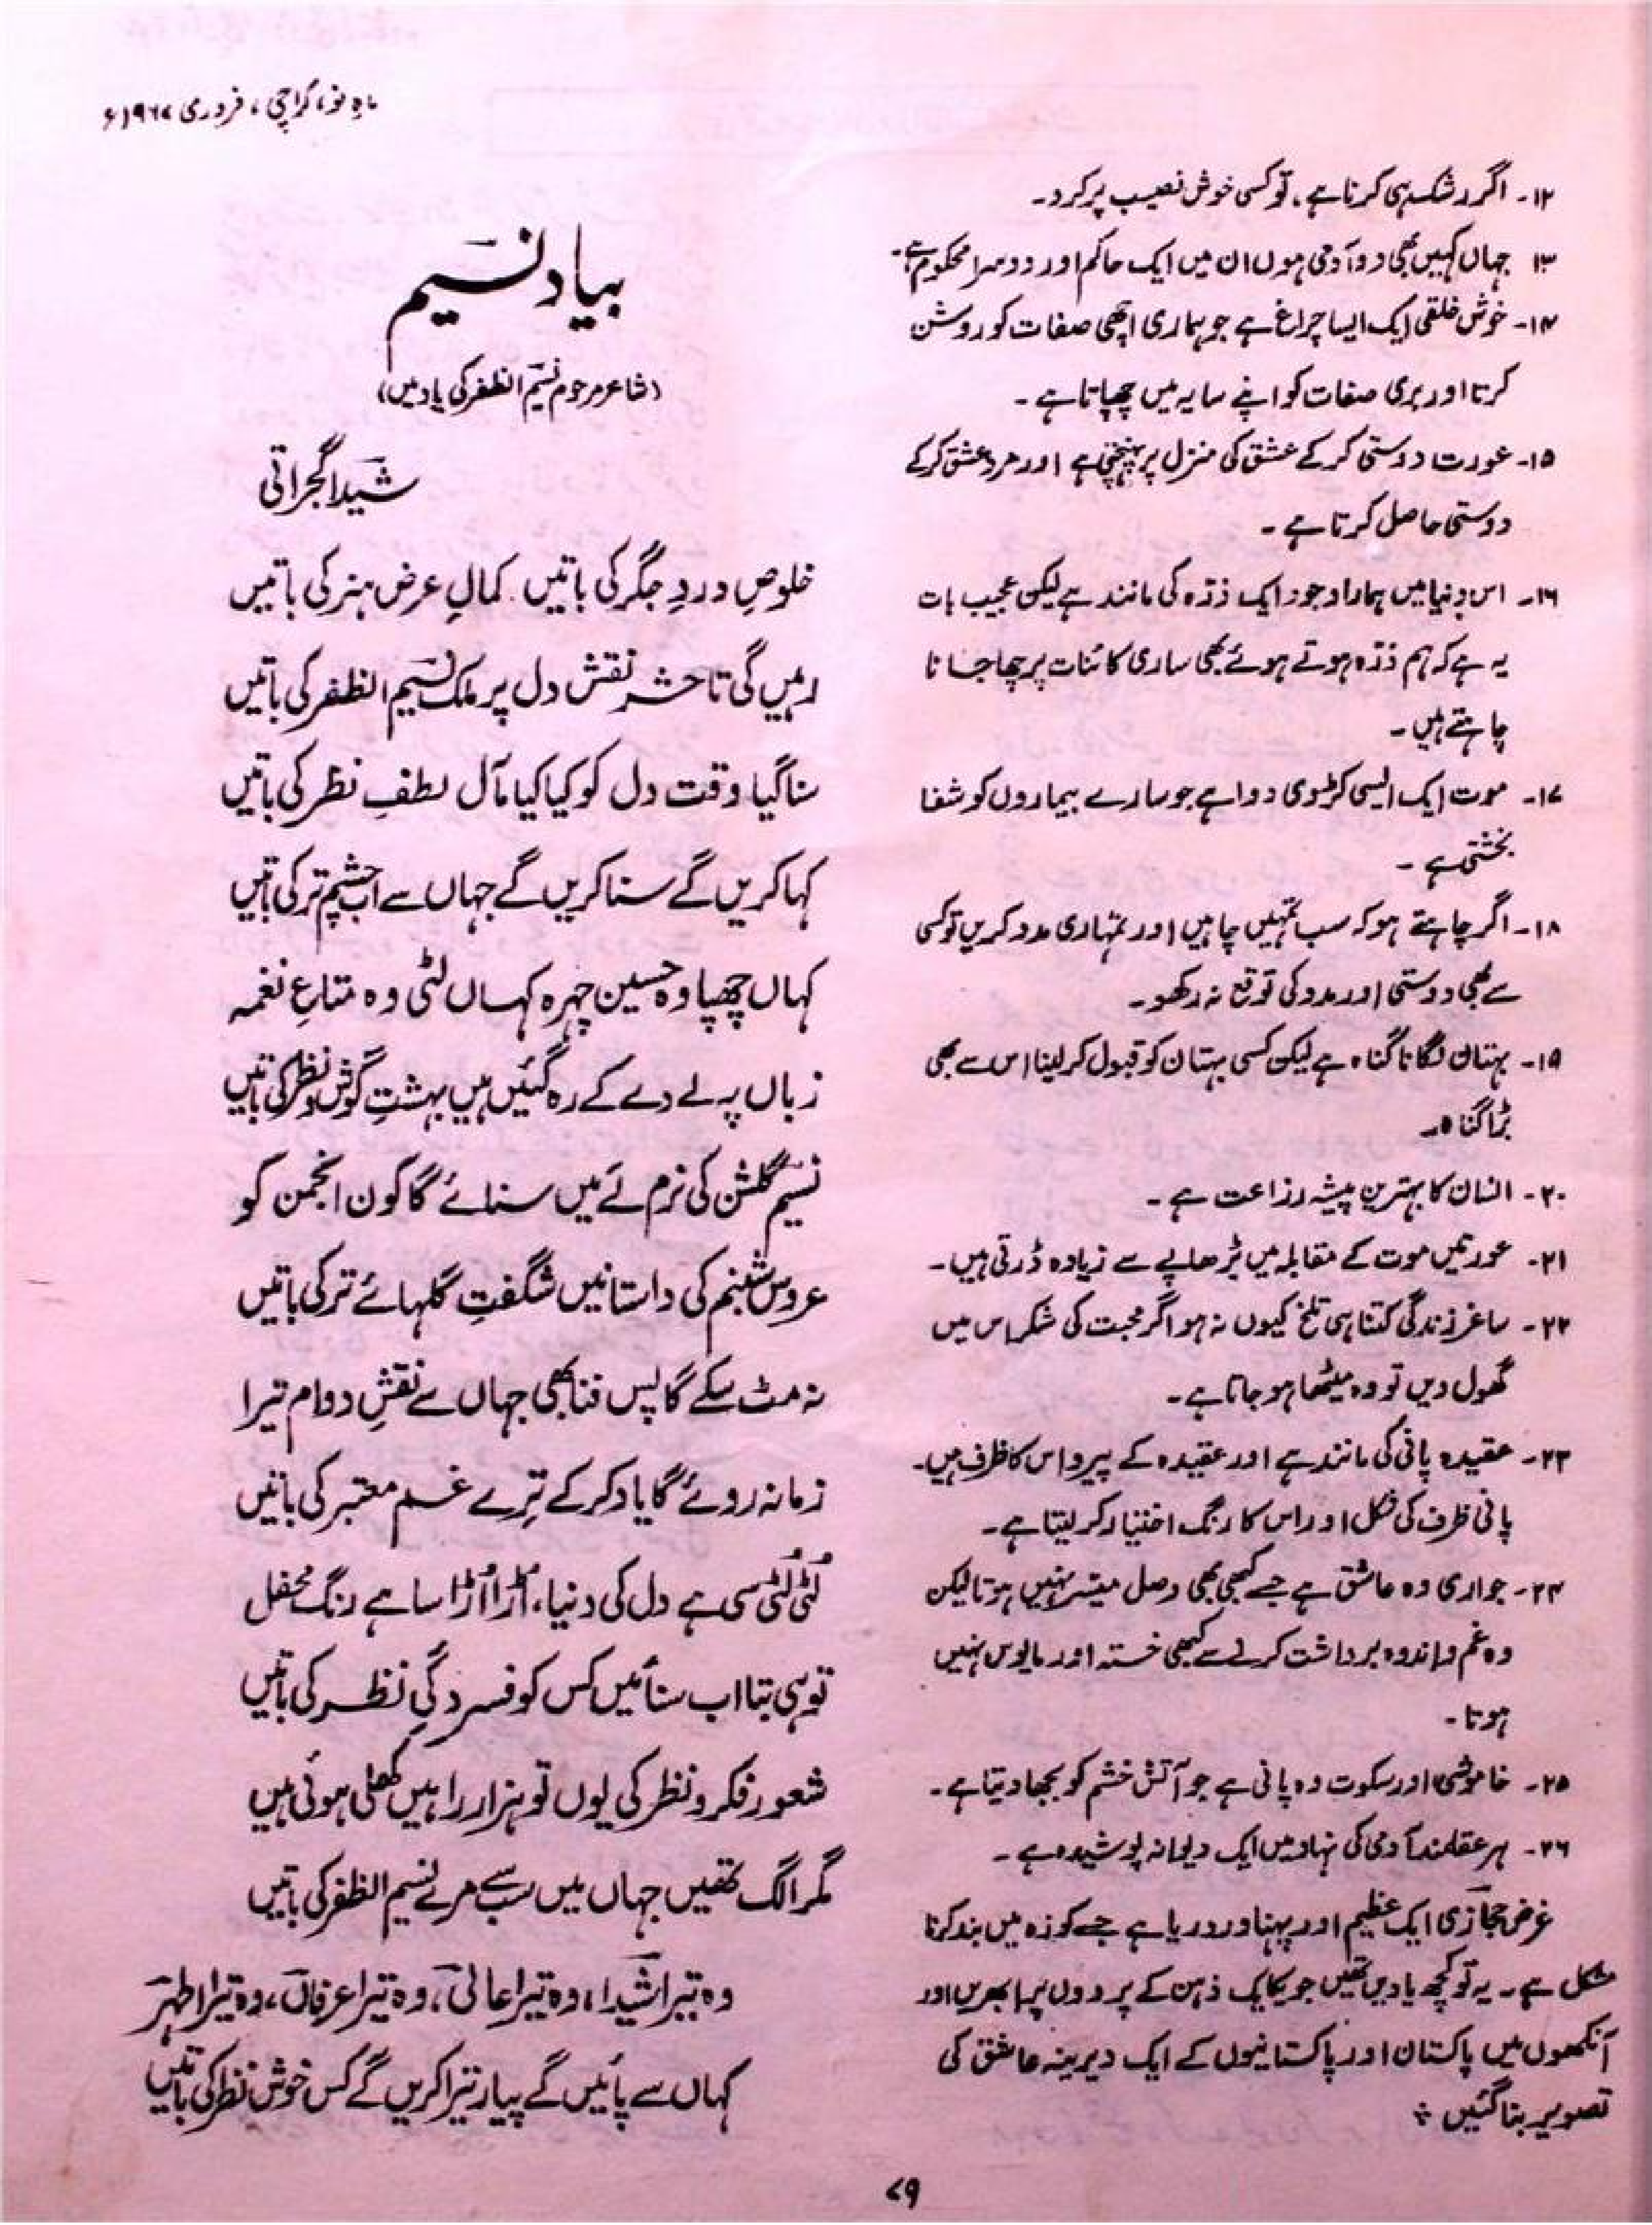 ماہِ نو، کراچی، فروری ۱۹۶۷ء
۱۲۔ اگر رشک ہی کرنا ہے، تو کسی خوش نصیب پر کرو۔
۱۳ جہاں کہیں بھی دو آدمی ہوں ان میں ایک حاکم اور دوسرا محکوم ہے۔
۱۴۔ خوش خلقی ایک ایسا چراغ ہے جو ہماری اچھی صفات کو روشن
کرتا اور بری صفات کو اپنے سایہ میں چھپاتا ہے۔
۱۵۔ عورت دوستی کر کے عشق کی منزل پر پہنچتی ہے اور مرد عشق کر کے
دوستی حاصل کرتا ہے۔
۱۶۔ اس دنیا میں ہمارا وجود ایک ذرّہ کی مانند ہے لیکن عجیب بات
یہ ہے کہ ہم ذرّہ ہوتے ہوئے بھی ساری کائنات پر چھا جانا
چاہتے ہیں۔
۱۷۔ موت ایک ایسی کڑوی دوا ہے جو سارے بیماروں کو شفا
بخشتی ہے۔
۱۸۔ اگر چاہتے ہو کہ سب تمہیں چاہیں اور تمہاری مدد کریں تو کسی
سے بھی دوستی اور مدد کی توقع نہ رکھو۔
۱۹۔ بہتان لگانا گناہ ہے لیکن کسی بہتان کو قبول کر لینا اس سے بھی
بڑا گناہ۔
۲۰۔ انسان کا بہترین پیشہ زراعت ہے۔
۲۱۔ عورتیں موت کے مقابلہ میں بڑھاپے سے زیادہ ڈرتی ہیں۔
۲۲۔ ساغرِ زندگی کتنا ہی تلخ کیوں نہ ہو اگر محبت کی شکر اس میں
گھول دیں تو وہ میٹھا ہو جاتا ہے۔
۲۳۔ عقیدہ پانی کی مانند ہے اور عقیدہ کے پیرو اس کا ظرف ہیں۔
پانی ظرف کی شکل اور اس کا رنگ اختیار کر لیتا ہے۔
۲۴۔ جواری وہ عاشق ہے جسے کبھی بھی وصل میسّر نہیں ہوتا لیکن
وہ غم و اندوہ برداشت کرنے سے کبھی خستہ اور مایوس نہیں
ہوتا۔
۲۵۔ خاموشی اور سکوت وہ پانی ہے جو آتش خشم کو بجھا دیتا ہے۔
۲۶۔ ہر عقلمند آدمی کی نہاد میں ایک دیوانہ پوشیدہ ہے۔
غرض حجازی ایک عظیم اور پہناور دریا ہے جسے کوزہ میں بند کرنا
مشکل ہے۔ یہ تو کچھ یادیں تھیں جو یکایک ذہن کے پردوں پر ابھریں اور
آنکھوں میں پاکستان اور پاکستانیوں کے ایک دیرینہ عاشق کی
تصویر بنا گئیں ٭
بیاد نسیم
(شاعر مرحوم نسیم الظفر کی یاد میں)
شیدا گجراتی
خلوصِ دردِ جگر کی باتیں کمالِ عرض ہنر کی باتیں
رہیں گی تا حشر نقش دل پر ملک نسیم الظفر کی باتیں
سنا گیا وقت دل کو کیا کیا مآل لطفِ نظر کی باتیں
کہا کریں گے سنا کریں گے جہاں سے اب چشم تر کی باتیں
کہاں چھپا وہ حسین چہرہ کہاں لٹی وہ متاعِ نغمہ
زباں پہ لے دے کے رہ گئیں ہیں بہشتِ گوش و نظر کی باتیں
نسیم گلشن کی نرم لے میں سنائے گا کون انجمن کو
عروس شبنم کی داستانیں شگفتِ گلہائے تر کی باتیں
نہ مٹ سکے گا پس فنا بھی جہاں سے نقشِ دوام تیرا
زمانہ روئے گا یاد کر کے ترے غم معتبر کی باتیں
لُٹی لُٹی سی ہے دل کی دنیا، اُڑا اُڑا سا ہے رنگ محفل
تو ہی بتا اب سنائیں کس کو فسردگیِ نظر کی باتیں
شعور فکر و نظر کی یوں تو ہزار راہیں کھلی ہوئی ہیں
مگر الگ تھیں جہاں میں سب سے مرے نسیم الظفر کی باتیں
وہ تیرا شیدا، وہ تیرا عالی، وہ تیرا عرفاں، وہ تیرا اطہر
کہاں سے پائیں گے پیار تیرا کریں گے کس خوش نظر کی باتیں
۷۹